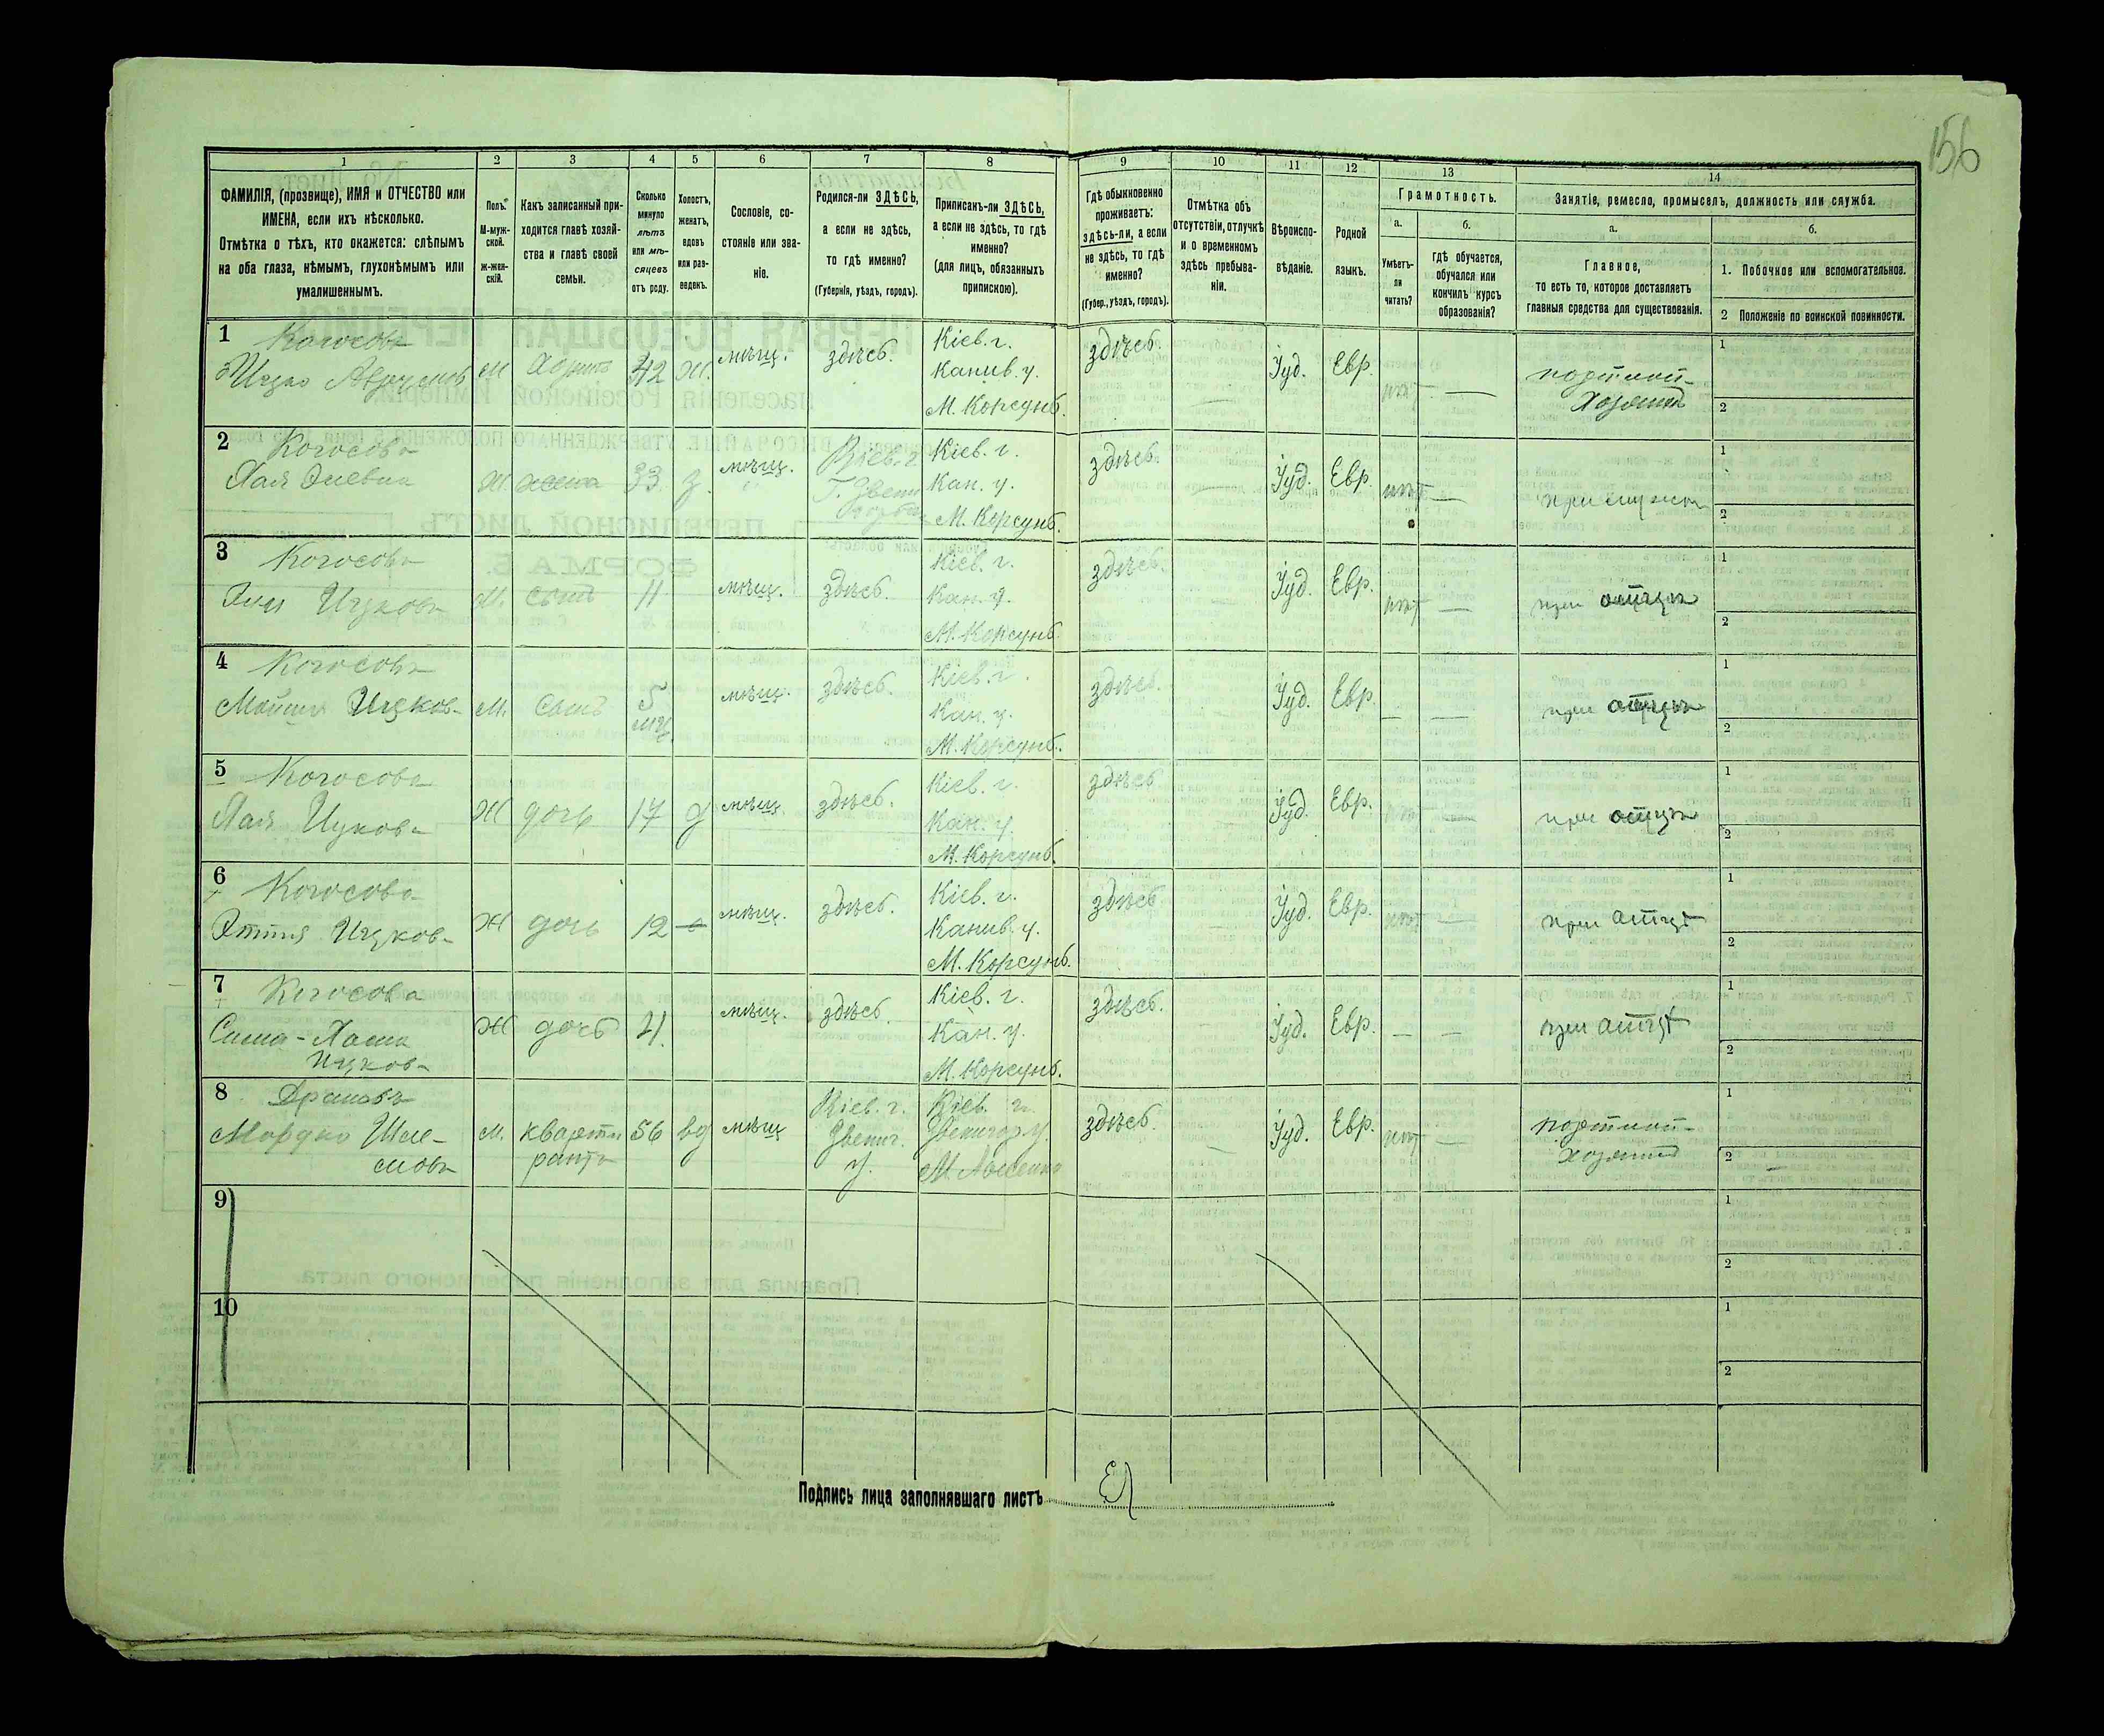 156
1
2
3
4
5
6
7
8
9
10
11
12
13
14
ФАМИЛІЯ, (прозвище), ИМЯ и ОТЧЕСТВО или
ИМЕНА, если ихъ нѣсколько.
Отмѣтка о тѣхъ, кто окажется: слѣпымъ
на оба глаза, нѣмымъ, глухонѣмымъ или
умалишеннымъ.
Полъ.
М-муж-
ской.
ж-жен-
скій.
Какъ записанный при-
ходится главѣ хозяй-
ства и главѣ своей
семьи.
Сколько
минуло
лѣтъ
или мѣ-
сяцевъ
отъ роду.
Холостъ,
женатъ,
вдовъ
или раз-
веденъ.
Сословіе, со-
стояніе или зва-
ніе.
Родился-ли ЗДѢСЬ,
а если не здѣсь,
то гдѣ именно?
(Губернія, уѣздъ, городъ).
Приписанъ-ли ЗДѢСЬ,
а если не здѣсь, то гдѣ
именно?
(для лицъ, обязанныхъ
припискою).
Гдѣ обыкновенно
проживаетъ:
здѣсь-ли, а если
не здѣсь, то гдѣ
именно?
(Губер., уѣздъ, городъ).
Отмѣтка объ
отсутствіи, отлучкѣ
и о временномъ
здѣсь пребыва-
ніи.
Вѣроиспо-
вѣданіе.
Родной
языкъ.
Грамотность.
а.
Умѣетъ-
ли
читать?
б.
Гдѣ обучается,
обучался или
кончилъ курсъ
образованія?
Занятіе, ремесло, промыселъ, должность или служба.
а.
Главное,
то есть то, которое доставляетъ
главныя средства для существованія.
б.
1. Побочное или вспомогательное.
2 Положеніе по воинской повинности.
1
Ицко
М
42
Ж.
мѣщ.
здѣсь.
Кіев. г.
Канив. у.
М. Корсунь.
здѣсь.
Іуд.
Евр.
нѣт
—
портной
хозяинъ
1
2
2
Когосова
Хая
Ж
жена
33
з.
мѣщ.
Кіев. г.
Г. Звени
Кіев. г.
Кан. у.
М. Корсунь.
здѣсь.
Іуд.
Евр.
нѣт
—
при мужѣ
1
2
3
Когосовъ
Ицковъ
М.
сынъ
11
мѣщ.
здѣсь.
Кіев. г.
Кан. у.
М. Корсунь.
здѣсь.
Іуд.
Евр.
нѣт
—
при отцѣ
1
2
4
Когосовъ
Ицков.
М.
сынъ
5
мѣщ.
здѣсь.
Кіев. г.
Кан. у.
М. Корсунь.
здѣсь.
Іуд.
Евр.
—
—
при отцѣ
1
2
5
Когосова
Хая Ицкова
Ж
дочь
17
д
мѣщ.
здѣсь.
Кіев. г.
Кан. у.
М. Корсунь.
здѣсь
Іуд.
Евр.
нѣт
—
при отцѣ
1
2
6
Когосова
Ицков.
Ж
дочь
12
мѣщ.
здѣсь.
Кіев. г.
Канив. у.
М. Корсунь.
здѣсь
Іуд.
Евр.
нѣт
—
при отцѣ
1
2
7
Когосова
Ицков.
Ж
дочь
4.
мѣщ.
здѣсь.
Кіев. г.
Кан. у.
М. Корсунь.
здѣсь.
Іуд.
Евр.
—
—
при отцѣ
1
2
8
Мордко Шле-
мовъ
М.
кварти
рантъ
56
вд
мѣщ
Кіев. г.
Звениг.
у.
Кіев. г.
Звенигор. у.
М. Лысенко
здѣсь.
—
Іуд.
Евр.
нѣт
—
портной
хозяинъ
1
2
9
1
2
10
1
2
Подпись лица заполнявшаго листъ